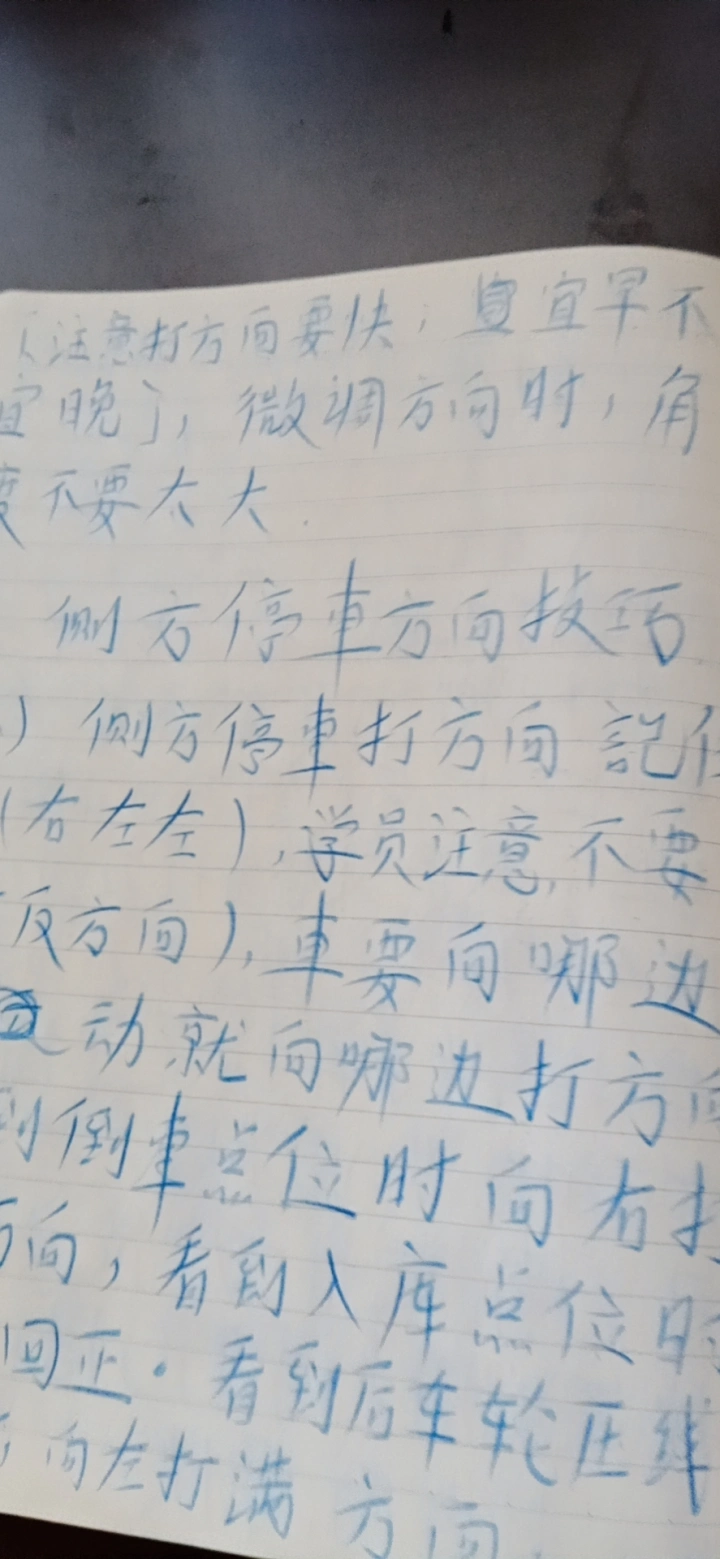 (注意打方向要快，宜早不
宜晚)，微调方向时，角
度不要太大.
侧方停車方向技巧
) 侧方停車打方向 記住
(右左左)，学员注意，不要
反方向)，車要向哪边
动就向哪边打方向
到倒車点位时向右打
方向，看到入库点位时
回正. 看到后车轮压线
向左打满方向.